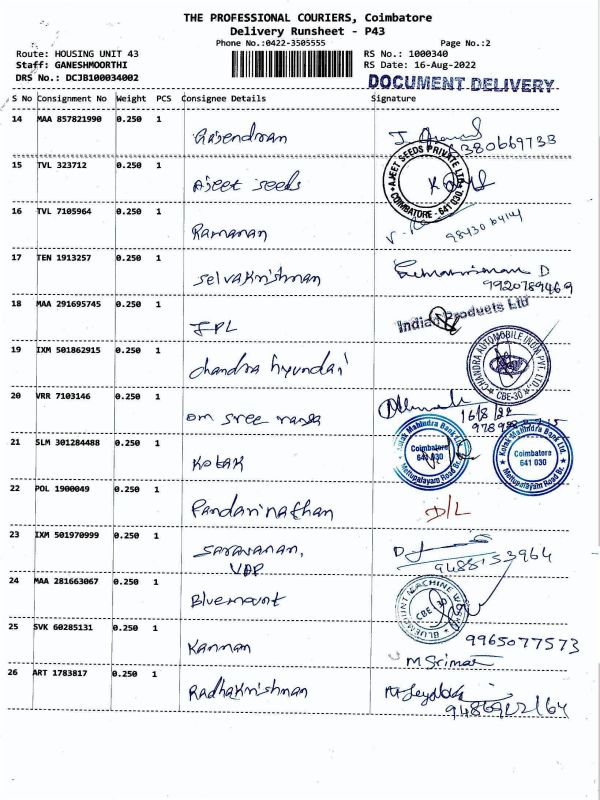 THE PROFESSIONAL COURIERS, Coimbatore
Delivery Runsheet - P43
Phone No.:0422-3505555
Page No.:2
Route: HOUSING UNIT 43
RS No.: 1000340
Staff: GANESHMOORTHI
RS Date: 16-Aug-2022
DRS No.: DCJB100034002
DOCUMENT DELIVERY
S No Consignment No Weight PCS Consignee Details Signature
14 MAA 857821990 0.250 1
Rajendran
15 TVL 323712 0.250 1
Ajeet seeds
AJEET SEEDS PRIVATE LTD
COIMBATORE - 641 030.
16 TVL 7105964 0.250 1
Ramanan
17 TEN 1913257 0.250 1
Selvakrishnan
D
9920789469
18 MAA 291695745 0.250 1
IPL
Indian Products Ltd
19 IXM 501862915 0.250 1
Chandra Hyundai
CHANDRA AUTOMOBILE INDIA PVT. LTD.
CBE-30
20 VRR 7103146 0.250 1
Om sree
16/8/22
21 SLM 301284488 0.250 1
Kotak
Kotak Mahindra Bank Ltd.
Coimbatore
641 030
Mettupalayam Road Br.
Kotak Mahindra Bank Ltd.
Coimbatore
641 030
Mettupalayam Road Br.
22 POL 1900049 0.250 1
Pandarinathan
D/L
23 IXM 501970999 0.250 1
Saravanan,
VDP
24 MAA 281663067 0.250 1
Bluemount
BLUEMOUNT MACHINE
CBE 30
25 SVK 60285131 0.250 1
Kannan
9965077573
26 ART 1783817 0.250 1
Radhakrishnan